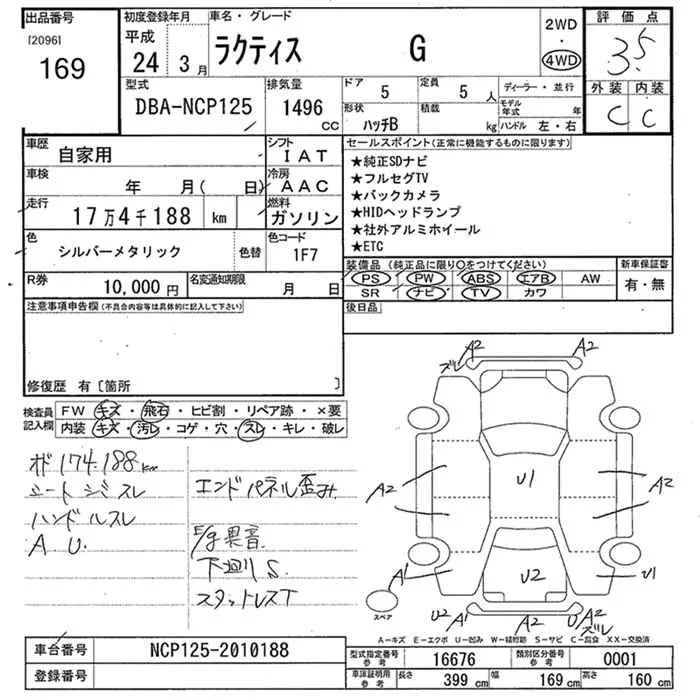 出品番号
[2096]
169
初度登録年月
平成
24 3月
車名・グレード
ラクティス G
2WD
・
4WD
評価点
3.5
外装 内装
C C
型式
DBA-NCP125
排気量
1496
CC
ドア 5
定員 5人
形状 ハッチB
積載 kg
ディーラー・並行
モデル年式 年
ハンドル 左・右
車歴 自家用
シフト IAT
車検 年 月( 日)
冷房 AAC
走行 17万4千188 km
燃料 ガソリン
色 シルバーメタリック 色替
色コード 1F7
R券 10,000円
名変通知期限 月 日
セールスポイント(正常に機能するものに限ります)
★純正SDナビ
★フルセグTV
★バックカメラ
★HIDヘッドランプ
★社外アルミホイール
★ETC
装備品(純正品に限り○をつけてください)
新車保証書
PS PW ABS エアB AW
SR ナビ TV カワ
有・無
後日品
注意事項申告欄(不具合内容等は具体的に記入して下さい)
修復歴 有〔箇所 〕
検査員記入欄
FW キズ・飛石・ヒビ割・リペア跡・×要
内装 キズ・汚レ・コゲ・穴・スレ・キレ・破レ
174.188km
シートシミスレ
ハンドルスレ
A U.
エンドパネル歪み
E/g異音
下廻りS.
スタットレスT
A2
ズレ
A2
A2
A2
U1
U2
A1
U1
U2
A1
A2
U
A2
ズレ
スペア
A−キズ E−エクボ U−凹み W−補修跡 S−サビ C−腐食 XX−交換済
車台番号 NCP125-2010188
登録番号
型式指定番号 参考 16676
類別区分番号 参考 0001
車庫証明用 参考 長さ 399 cm 幅 169 cm 高さ 160 cm